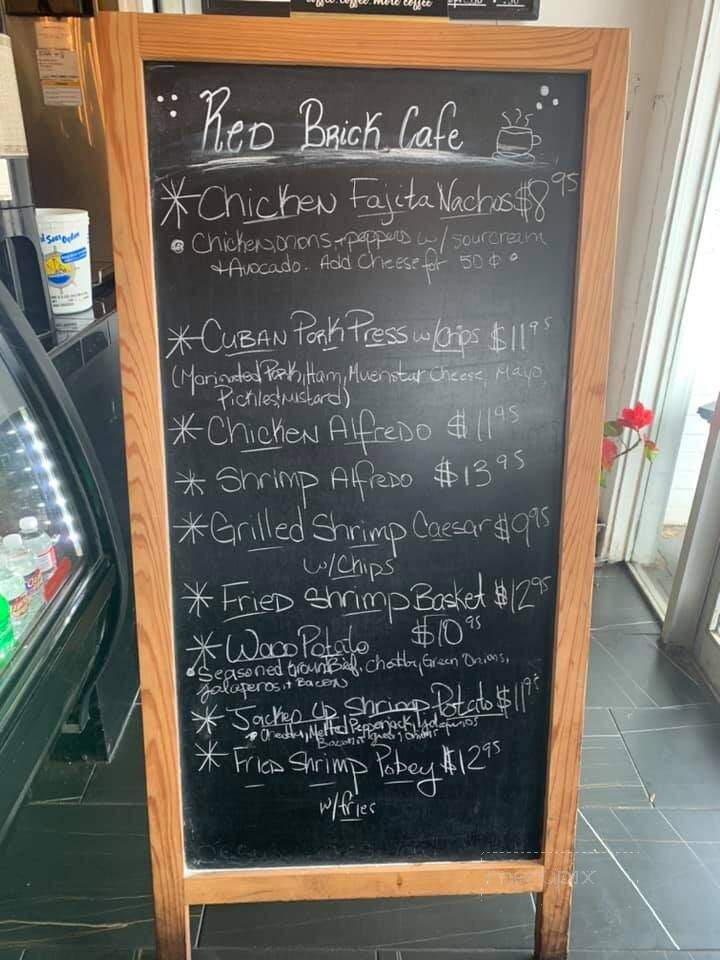 coffee. coffee. more coffee
Red Brick Cafe
* Chicken Fajita Nachos $8.95
• Chicken, onions, + peppers w/ sourcream
+ Avocado. Add Cheese for 50¢ •
* Cuban Pork Press w/ Chips $11.95
(Marinated Pork, Ham, Muenstar Cheese, Mayo,
Pickles, Mustard)
* Chicken Alfredo $11.95
* Shrimp Alfredo $13.95
* Grilled Shrimp Caesar $9.95
w/ Chips
* Fried Shrimp Basket $12.95
* Waco Potato $10.95
• Seasoned Ground Beef, Cheddar, Green Onions,
Jalaperos, + Bacon
* Jacked Up Shrimp Potato $11.95
Melted Pepperjack, Jalapenos
Bacon,
* Fried Shrimp Pobey $12.95
w/ fries